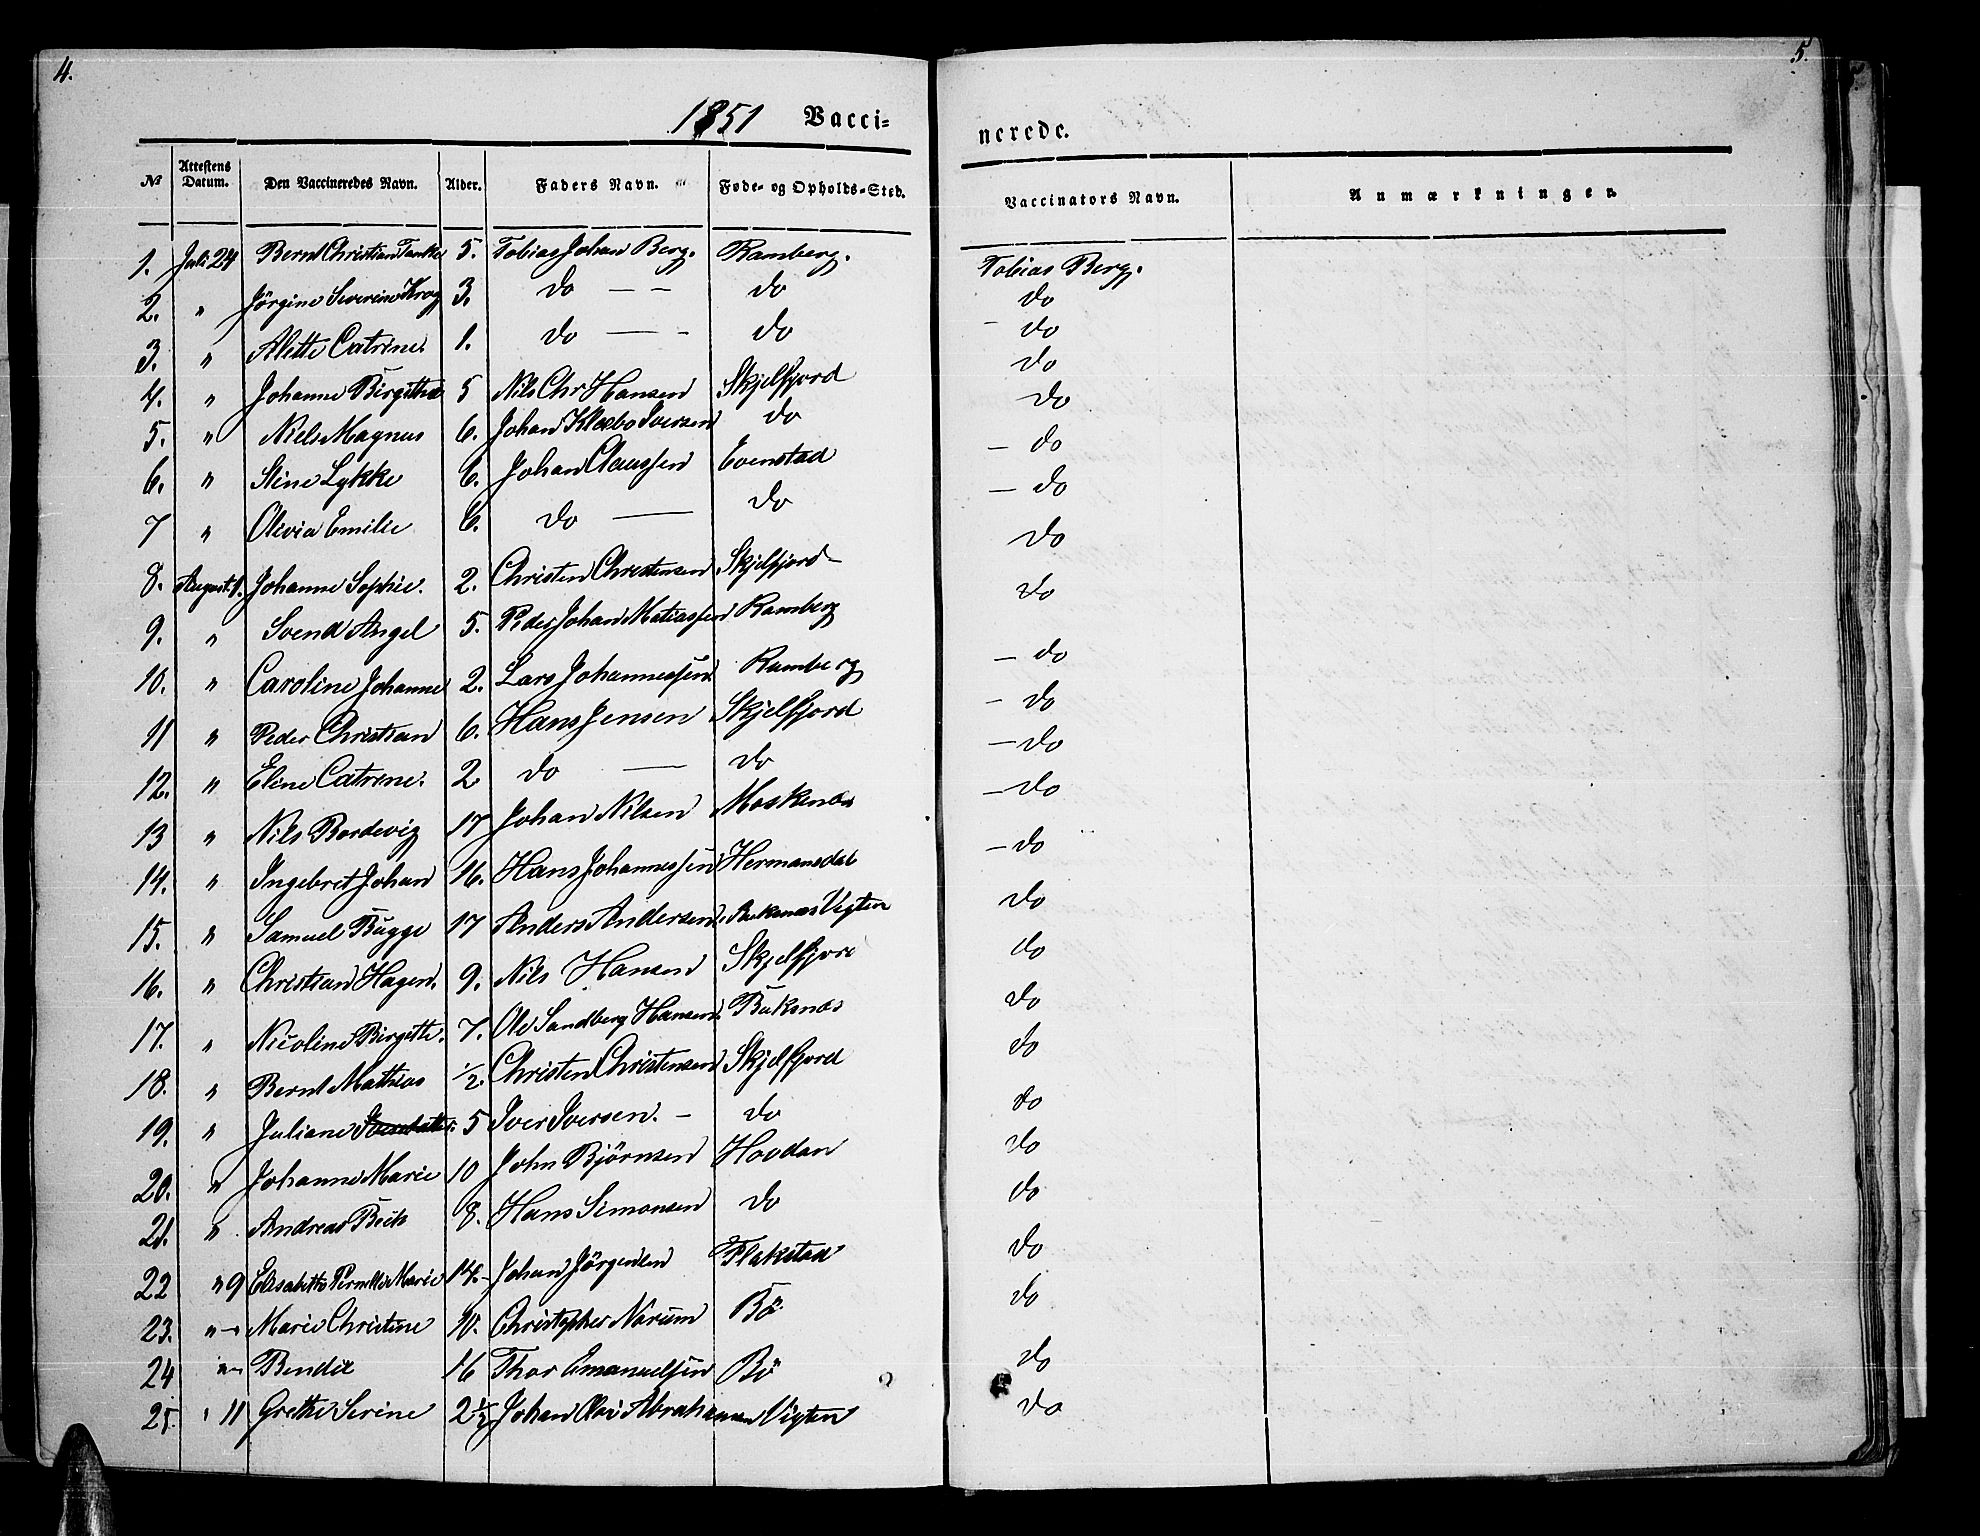 4.
5.
1851 Vacci-
nerede.
No Attestens Datum. Den Vaccineredes Navn. Alder. Faders Navn. Føde- og Opholds-Sted. Vaccinators Navn. Anmærkninger.
1. Juli 24 Bernt Christian Tanke 5. Tobias Johan Berg. Ramberg. Tobias Berg.
2. " Jörgine Severine Krog 3. do — — do do
3. " Alette Catrine. 1. do — - do - do
4. " Johanne Birgitha 5 Nils Chr Hansen Skjelfjord do
5. " Niels Magnus 6. Johan Klæbo Iversen do do
6. " Stine Lykke 6. Johan Claussen Evenstad — do
7 " Olivia Emilie 6. do — do — do
8. August 1. Johanne Sophie. 2. Christen Christensen Skjelfjord- do
9. " Svend Angel 5. Peder Johan Matiassen Ramberg do
10. " Caroline Johanne 2. Lars Johannessen Ramberg — do
11 " Peder Christian 6. Hans Jensen Skjelfjord - do
12. " Eline Catrine. 2 do — do — do
13 " Nils Bordevig 17 Johan Nilsen Moskenæs — do
14. " Ingebret Johan 16. Hans Johannessen Hermansdal — do
15. " Samuel Bugge 17 Anders Andersen. Buksnæs Vigten do
16. " Christian Hagen. 9. Nils Hansen Skjelfjord do
17. " Nicoline Birgitte. 7. Ole Sandberg Hansen. Buksnæs do
18. " Bernt Mathias ½. Christen Christensen Skjelfjord do
19. " Juliane 5 Iver Iversen. - do do
20. " Johanne Marie 10 John Björnsen Hovdan do
21. " Andreas Bech 8. Hans Simonsen do do
22 " 9 Elisabeth Pernille Marie 14.- Johan Jörgensen Flakstad do
23. " — Marie Christine 10. Christopher Norum Bö do
24 " — Bendix 16 Thor Emanuelsen Bö do
25. ' 11 Grethe Serine 2½ Johan Abrahamsen Vigten do